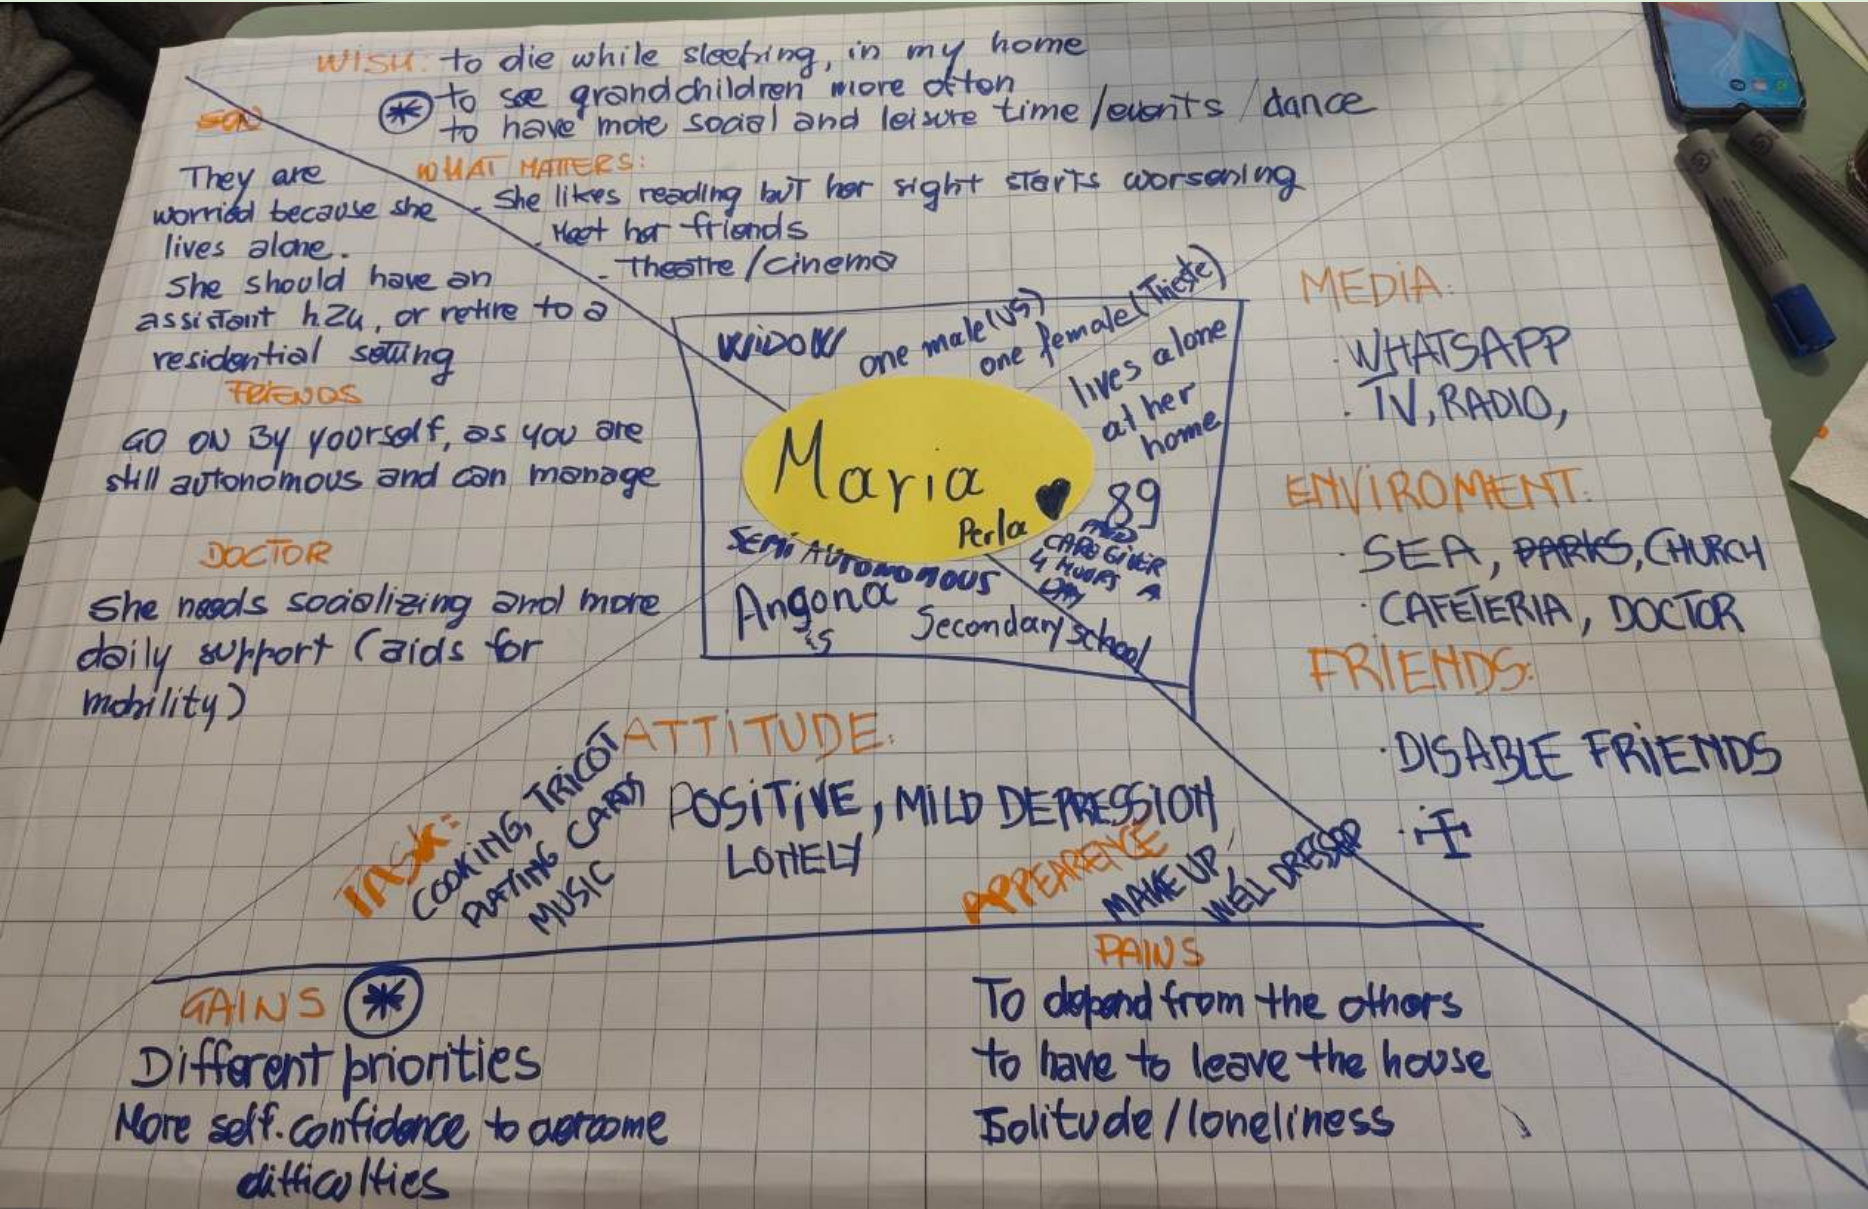 WISH: to die while sleeping, in my home
to see grandchildren more often
to have more social and leisure time/events/dance
WHAT MATTERS:
- She likes reading but her sight starts worsening
- Meet her friends
- Theatre/cinema
SON
They are
worried because she
lives alone.
She should have an
assistant h24, or retire to a
residential setting
FRIENDS
GO ON By yourself, as you are
still autonomous and can manage
DOCTOR
She needs socializing and more
daily support (aids for
mobility)
WIDOW
one male (US)
one female (Trieste)
lives alone
at her
home
Maria
Perla
89
SEMI AUTONOMOUS
AND
CAREGIVER
4 HOURS A
DAY
Angona
is
Secondary school
MEDIA:
· WHATSAPP
· TV, RADIO,
ENVIROMENT:
· SEA, PARKS, CHURCH
· CAFETERIA, DOCTOR
FRIENDS:
· DISABLE FRIENDS
ATTITUDE:
POSITIVE, MILD DEPRESSION
LONELY
TASK:
COOKING, TRICOT
PLAYING CARDS
MUSIC
APPEARENCE
MAKE UP,
WELL DRESSED
GAINS
Different priorities
More self-confidence to overcome
difficulties
PAINS
To depend from the others
to have to leave the house
Solitude/loneliness